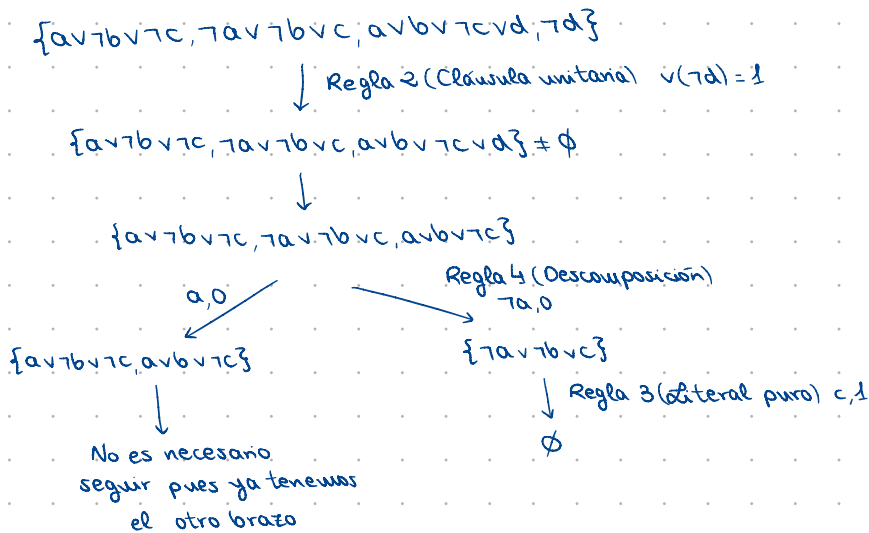 {a∨¬b∨¬c, ¬a∨¬b∨c, a∨b∨¬c∨d, ¬d}
Regla 2 (Cláusula unitaria) v(¬d) = 1
{a∨¬b∨¬c, ¬a∨¬b∨c, a∨b∨¬c∨d} ≠ ∅
{a∨¬b∨¬c, ¬a∨¬b∨c, a∨b∨¬c}
Regla 4 (Descomposición)
a,0
¬a,0
{a∨¬b∨¬c, a∨b∨¬c}
{¬a∨¬b∨c}
Regla 3 (Literal puro) c,1
∅
No es necesario
seguir pues ya tenemos
el otro brazo